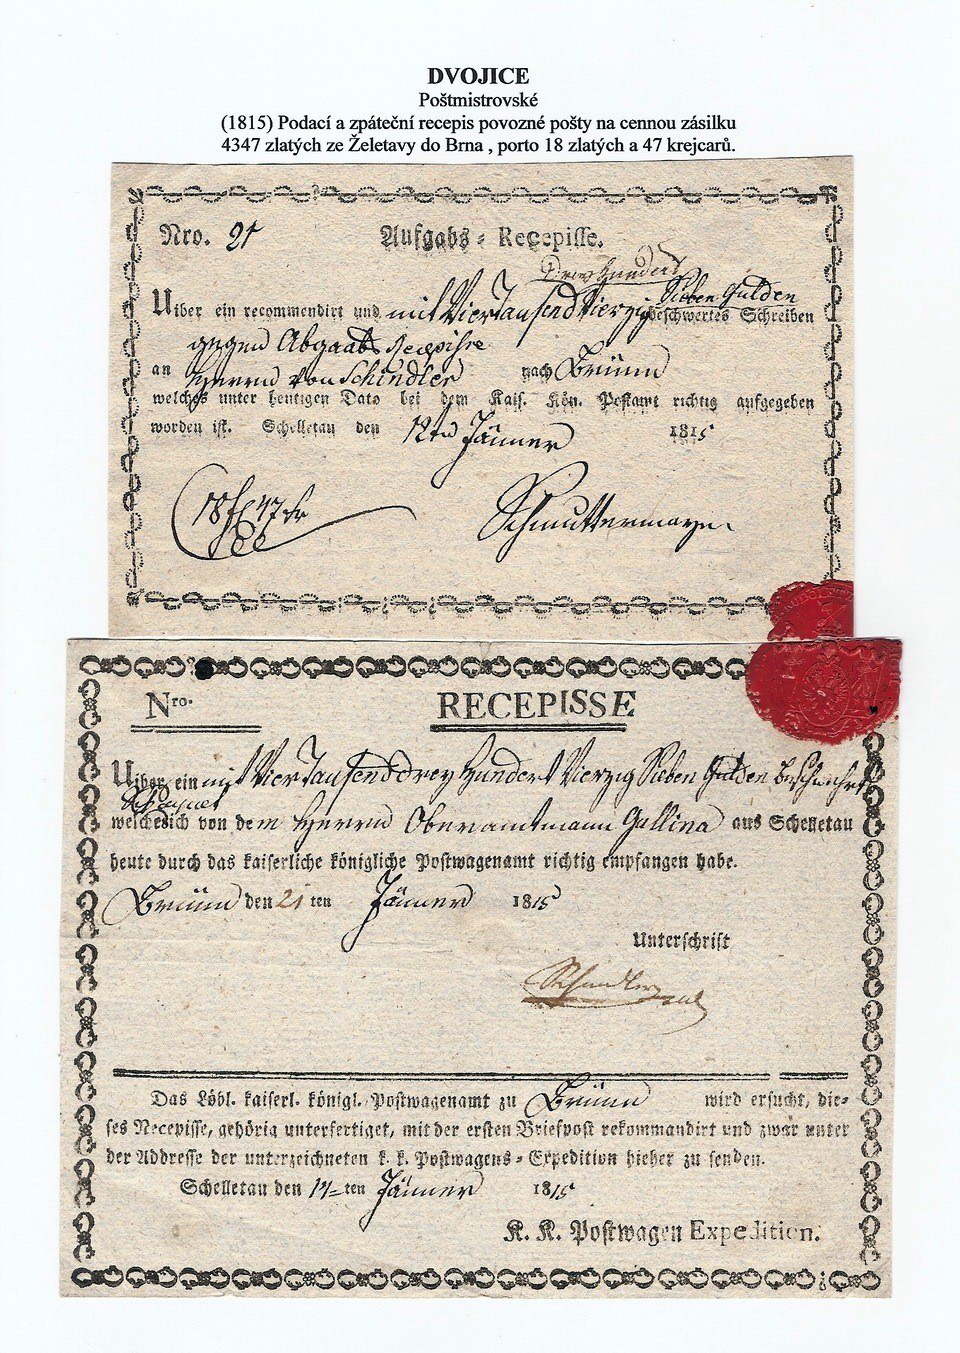 DVOJICE
Poštmistrovské
(1815) Podací a zpáteční recepis povozné pošty na cennou zásilku
4347 zlatých ze Želetavy do Brna , porto 18 zlatých a 47 krejcarů.
Nro. 21 Aufgabs - Recepisse.
Drey Hundert
Sieben Gulden
Uiber ein recommendirt und mit Vier Tausend Vierzig beschwertes Schreiben
gegen Abgaabs Recepisse
an Herrn von Schindler nach Brünn
welches unter heutigen Dato bei dem Kais. Kön. Postamt richtig aufgegeben
worden ist. Schelletau den 12ten Jänner 1815
18 f 47 kr
Schmuttermayer
Nro. RECEPISSE
Uiber ein mit Vier Tausend drey Hundert Vierzig Sieben Gulden beschwehrt
welches ich von dem Herrn Oberamtmann Gallina aus Schelletau
heute durch das kaiserliche königliche Postwagenamt richtig empfangen habe.
Brünn den 21 ten Jänner 1815
Unterschrift
Schindler
Das Löbl. kaiserl. königl. Postwagenamt zu Brünn wird ersucht, die-
ses Recepisse, gehörig unterfertiget, mit der ersten Briefpost rekommandirt und zwar unter
der Addresse der unterzeichneten k. k. Postwagens - Expedition hieher zu senden.
Schelletau den ten Jänner 1815
K. K. Postwagen Expedition.